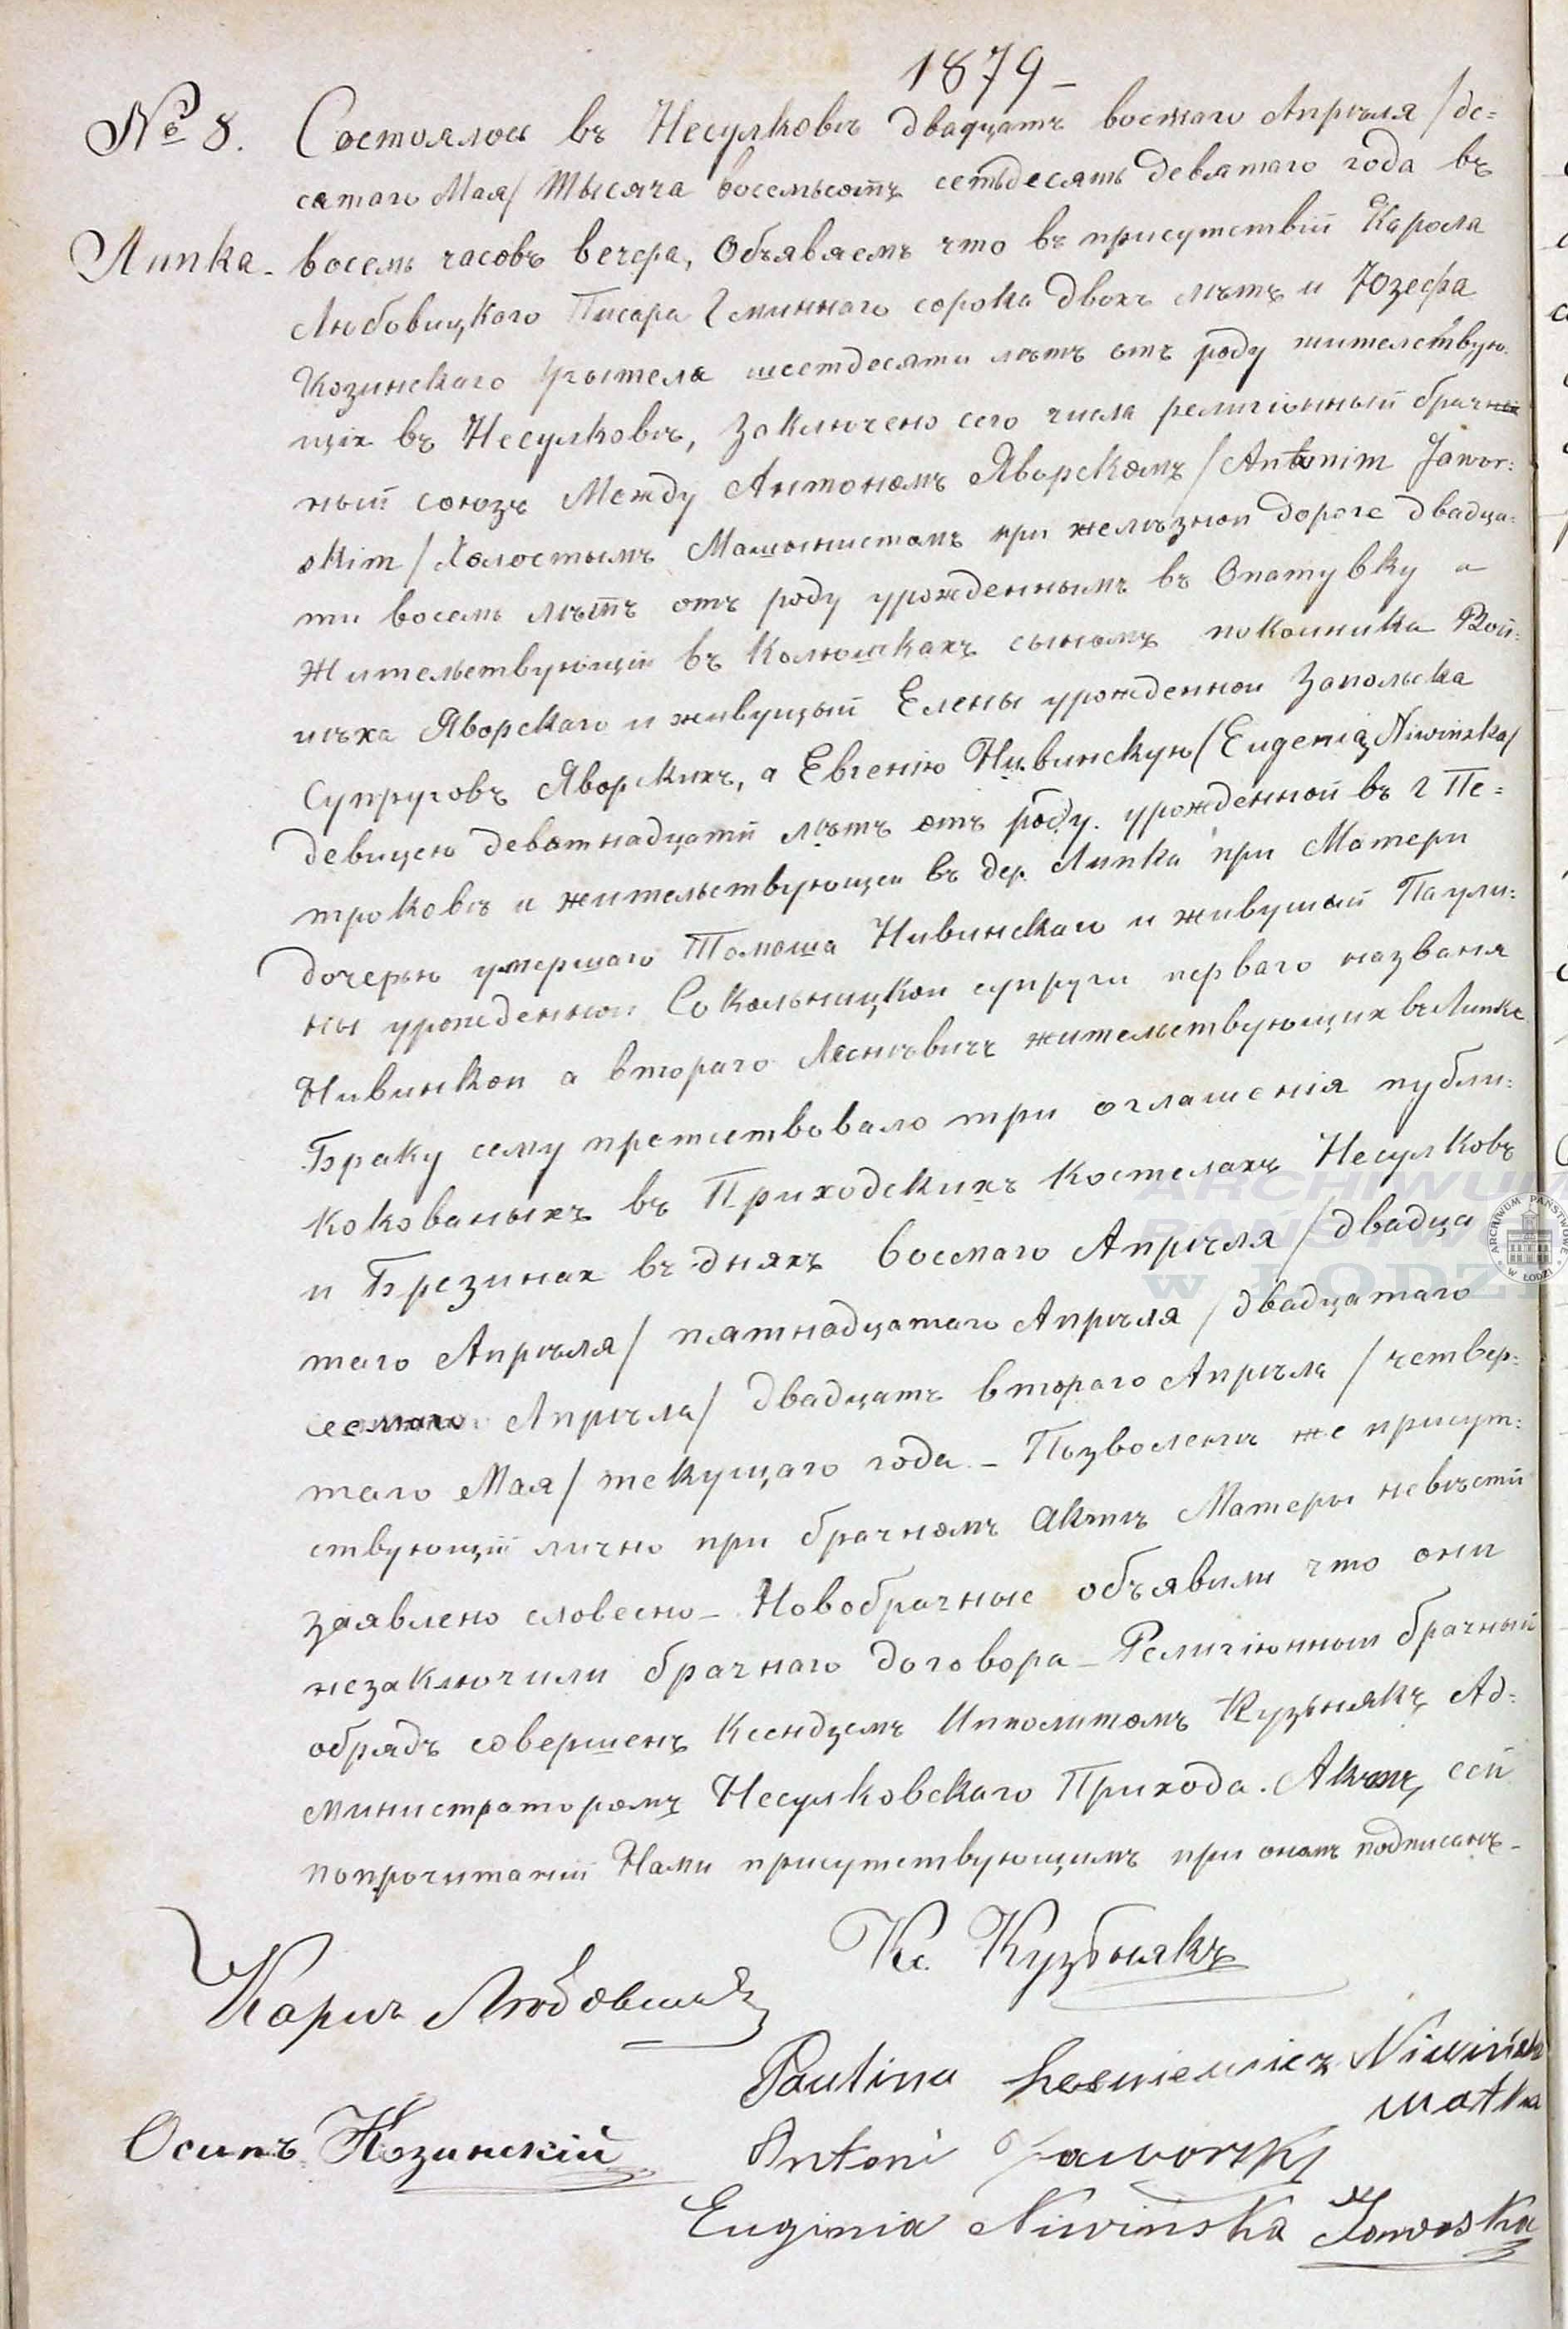 1879 –
№ 8. Состоялось въ Несулковѣ двадцать восмаго Апрѣля /де=
сятаго Мая/ тысяча восемьсотъ семьдесять девятаго года въ
Липка - восемь часовъ вечера, Объявяемъ что въ присутствіи Кароля
Любовицкого Писара Гминнаго сорока двохъ лѣтъ и Юзефа
Козинскаго Учытеля шестдесяти лѣтъ отъ роду жителствую
щія въ Несулковѣ, Заключено сего числа религіонный брач
ный союзъ Между Антономъ Яворскомъ /Antonim Jawor:
skim/ Холостымъ Машынистомъ при желѣзной дороге двадца=
ти восемь лѣтъ отъ роду урожденнымъ въ Опатувку а
Жительствующій въ Колюшкахъ сыномъ покойника Вой:
цѣха Яворскаго и живущый Елены урожденной Запольска
Супруговъ Яворкихъ, а Евгенію Нивинскую /Eugenią Niwinska/
девицею девятнадцати лѣтъ отъ роду. урожденной въ г Пе=
троковѣ и жительствующей въ дер. Липка при Матери
дочерью умершаго Томаша Нивинскаго и живушой Паули:
ны урожденной Сокольницкой супруги перваго названя
Нивинкой а втораго Леснѣвичъ жительствующих въ Липке
Браку сему претшествовало три оглашенія публи:
кокованыхъ въ Приходскихъ костелахъ Несулковъ
и Брезинах въ дняхъ восмаго Апрѣля /двадца
таго Апрѣля/ пятнадцатаго Апрѣля /двадцатаго
седмаго Апрѣля/ двадцать втораго Апрѣля /четвер=
таго Мая/ текущаго года – Позволенѣ же присут:
ствующій лично при брачномъ Актѣ Матеры невѣсти
заявлено словесно – Новобрачные объявили что они
незаключили брачнаго договора – Религіонный брачный
обрядъ совершенъ Ксендземъ Ипполитомъ Кузьнякъ Ад=
министраторомъ Несулковскаго Прихода. Актъ сей
попрочитаніи Нами присутствующимъ при ономъ подписанъ –
Кс. Кузьнякъ
Paulina Lesniewicz Niwińska
matka
Осипъ Козинскій
Antoni Jaworski
Euginia Niwinska Jaworska
ARCHIWUM
PAŃSTWOWE
W ŁODZI
ARCHIWUM PAŃSTWOWE W ŁODZI